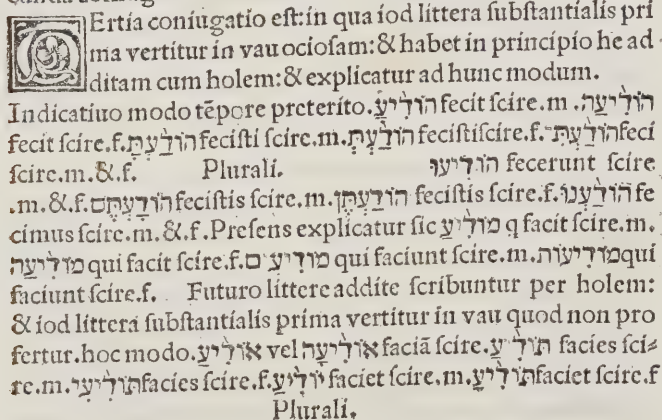 Tertia coniugatio est:in qua iod littera substantialis pri
ma vertitur in vau ociosam:& habet in principio he ad
ditam cum holem:& explicatur ad hunc modum.
Indicatiuo modo tēpore preterito.הוֹדִיעַ fecit scire.m .הוֹדִיעָה
fecit scire.f.הוֹדַעְתָּ fecisti scire.m.הוֹדַעְתְּ fecistiscire.f.הוֹדַעְתִּי feci
scire.m.&.f. Plurali. הוֹדִיעוּ fecerunt scire
.m.&.f.הוֹדַעְתֶּם fecistis scire.m.הוֹדַעְתֶּן fecistis scire.f.הוֹדַעְנוּ fe
cimus scire.m.&.f.Presens explicatur sic מוֹדִיעַ q facit scire.m.
מוֹדִיעָה qui facit scire.f.מוֹדִיעִים qui faciunt scire.m.מוֹדִיעוֹת qui
faciunt scire.f. Futuro littere addite scribuntur per holem:
& iod littera substantialis prima vertitur in vau quod non pro
fertur.hoc modo.אוֹדִיעַ vel אוֹדִיעָה faciā scire.תוֹדִיעַ facies sci⸗
re.m.תוֹדִיעִי facies scire.f.יוֹדִיעַ faciet scire.m.תוֹדִיעַ faciet scire.f
Plurali.